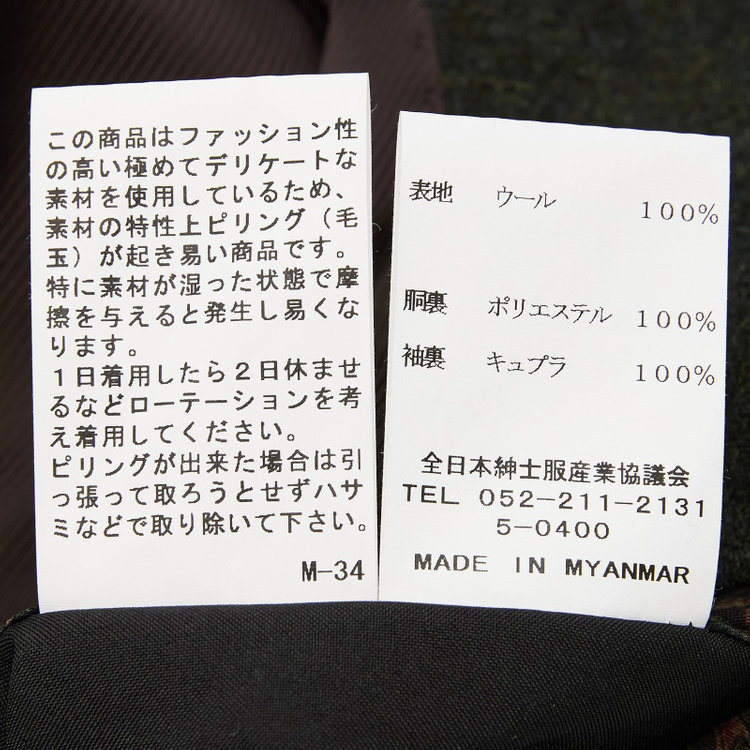 この商品はファッション性
の高い極めてデリケートな
素材を使用しているため、
素材の特性上ピリング（毛
玉）が起き易い商品です。
特に素材が湿った状態で摩
擦を与えると発生し易くな
ります。
１日着用したら２日休ませ
るなどローテーションを考
え着用してください。
ピリングが出来た場合は引
っ張って取ろうとせずハサ
ミなどで取り除いて下さい。
M-34
表地 ウール 100%
胴裏 ポリエステル 100%
袖裏 キュプラ 100%
全日本紳士服産業協議会
TEL 052-211-2131
5-0400
MADE IN MYANMAR